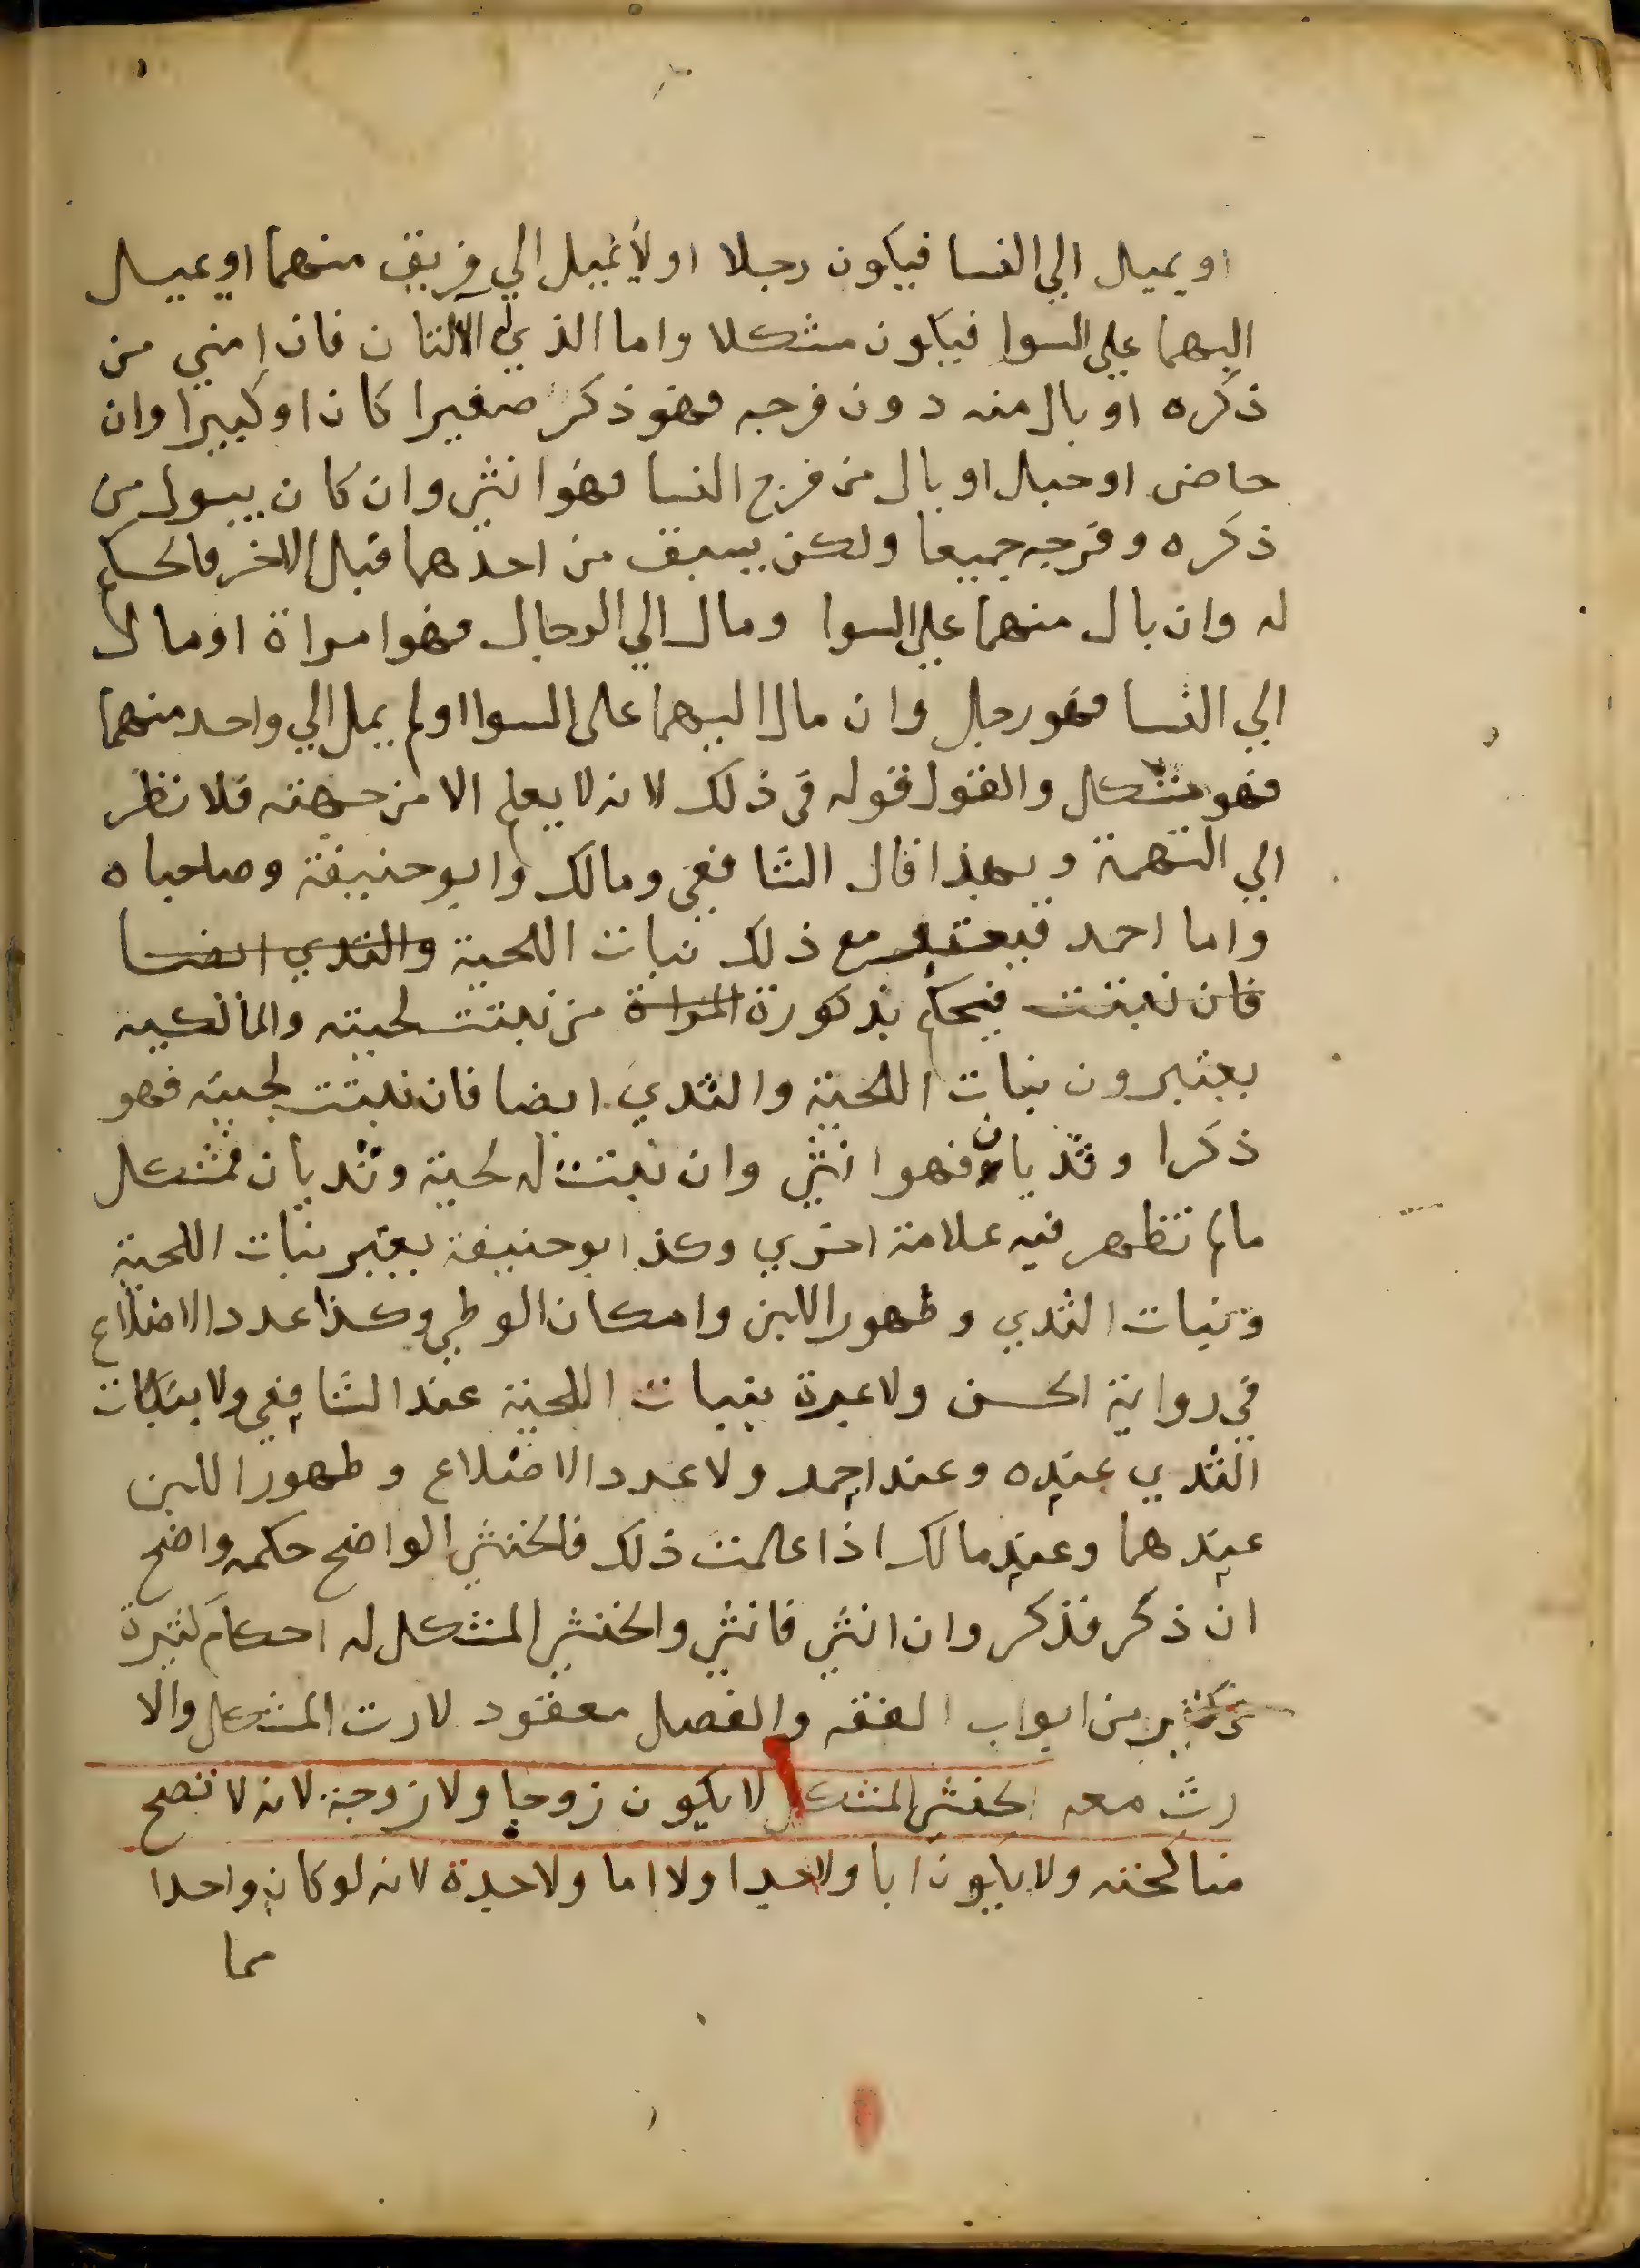 او يميل الي النسا فيكون رجلا او لا يميل الي فريق منهما او يميل
اليهما علي السوا فيكون مشكلا واما الذي له الالتان فان امني من
ذكره او بال منه دون فرجه فهو ذكر صغيرا كان او كبيرا وان
حاض او حبل او بال من فرج النسا فهو انثي وان كان يبول من
ذكره وفرجه جميعا ولكن يسبق من احدهما قبل الاخر فالحكم
له وان بال منهما علي السوا ومال الي الرجال فهو امراة او مال
الي النسا فهو رجل وان مال اليهما علي السوا او لم يمل الي واحد منهما
فهو مشكل والقول قوله في ذلك لانه لا يعلم الا من جهته فلا نظر
الي التهمة وبهذا قال الشافعي ومالك وابو حنيفة وصاحباه
واما احمد فيعتبر مع ذلك نبات اللحية والثدي ايضا
فان نبتت فيحكم بذكورة المراة من نبتت لحيته والمالكيه
يعتبرون نبات اللحية والثدي ايضا فان نبتت لحيته فهو
ذكرا وثديان فهو انثي وان نبتت له لحية وثديان فمشكل
مالم تظهر فيه علامة اخري وكذا ابو حنيفة يعتبر نبات اللحية
ونبات الثدي وظهور اللبن وامكان الوطي وكذا عدد الاضلاع
في رواية الحسن ولا عبرة بنبات اللحية عند الشافعي ولا بنبات
الثدي عنده وعند احمد ولا عدد الاضلاع وظهور اللبن
عندهما وعند مالك اذا علمت ذلك فالخنثي الواضح حكمه واضح
ان ذكر فذكر وان انثي فانثي والخنثي المشكل له احكام كثيرة
في كثير من ابواب الفقه والفصل معقود لارث المشكل والا
رث معه الخنثي المشكل لا يكون زوجا ولا زوجة لانه لا تصح
مناكحته ولا يكون ابا ولا جدا ولا اما ولا جدة لانه لو كان واحدا
مما